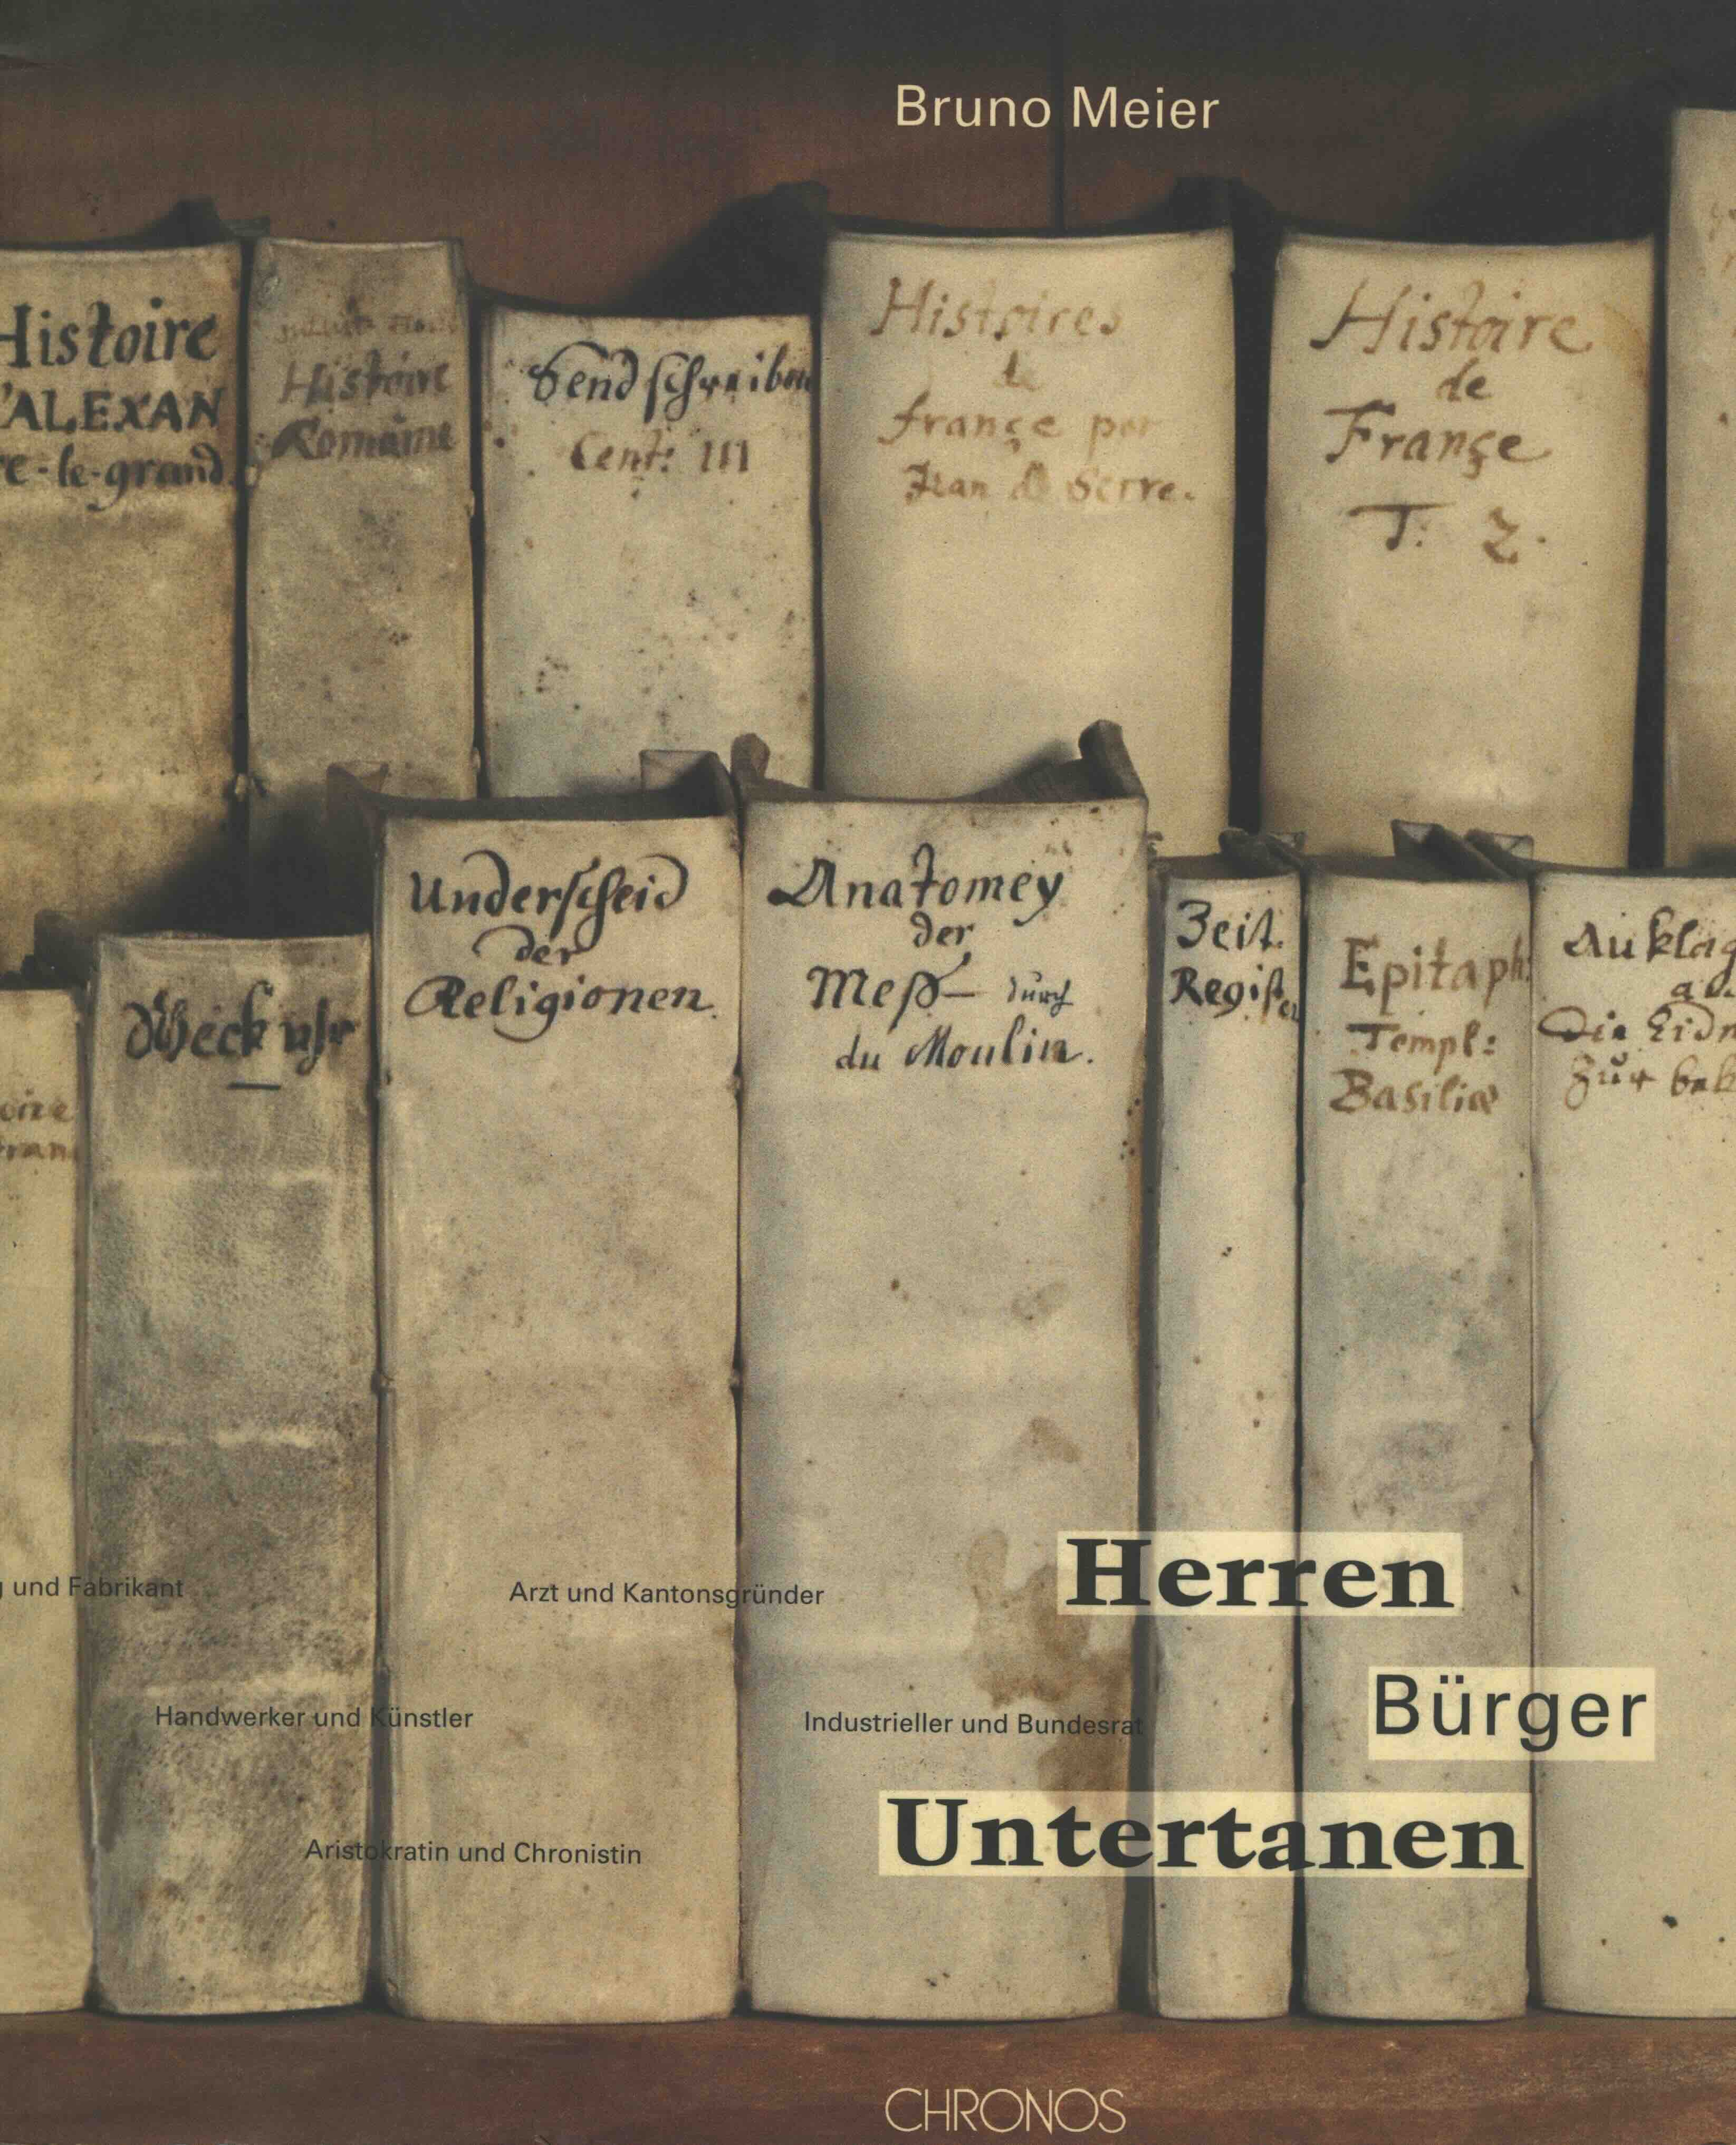 Bruno Meier
Histoire
'ALEXAN
re-le-grand
Histoire
Romaine
Sendschreiben
Cent: III
Histoires
de
françe par
Jean de Serre.
Histoire
de
Françe
T: 2.
oire
Weck uhr
Underscheid
der
Religionen.
Anatomey
der
Meß- durch
du Moulin.
Zeit.
Register
Epitaph:
Templ:
Basiliæ
Auklag
an
Die Eidn
Zur bek
Herren
und Fabrikant
Arzt und Kantonsgründer
Bürger
Handwerker und Künstler
Industrieller und Bundesrat
Untertanen
Aristokratin und Chronistin
CHRONOS